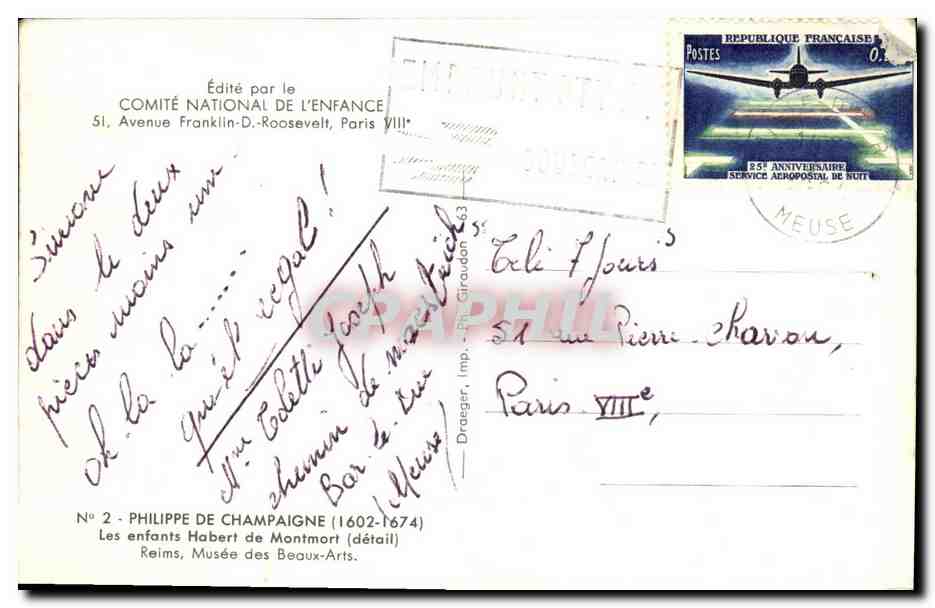 Édité par le
COMITÉ NATIONAL DE L'ENFANCE
51, Avenue Franklin-D.-Roosevelt, Paris VIIIe
RÉPUBLIQUE FRANÇAISE
POSTES
25e ANNIVERSAIRE
SERVICE AÉROPOSTAL DE NUIT
MEUSE
Simone
dans le deux
pièces moins une
oh la la......
quel regal!
Mme Colette Joseph
chemin de maestrich
Bar-le-Duc
(Meuse)
Télé 7 Jours
51 rue Pierre Charon,
Paris VIIIe,
Draeger, Imp. - Ph. Giraudon 63
CPAPHIL
N° 2 - PHILIPPE DE CHAMPAIGNE (1602-1674)
Les enfants Habert de Montmort (détail)
Reims, Musée des Beaux-Arts.